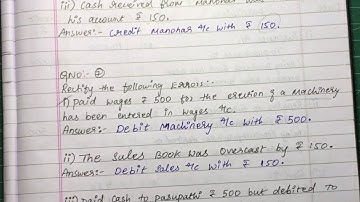 iii) Cash received from Manohar was
his account ₹ 150.
Answer:- Credit Manohar A/c with ₹ 150.
QNO:- ②
Rectify the following Errors:-
i) Paid wages ₹ 500 for the erection of a Machinery
has been entered in wages A/c.
Answer:- Debit Machinery A/c with ₹ 500.
ii) The Sales Book was overcast by ₹ 150.
Answer:- Debit Sales A/c with ₹ 150.
iii) Paid cash to Pasupathi ₹ 500 but debited to